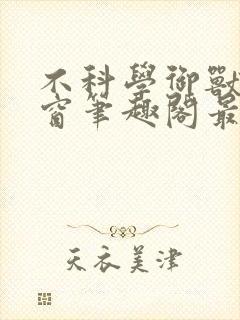 不科學御獸
窗筆趣閣最
天衣美津